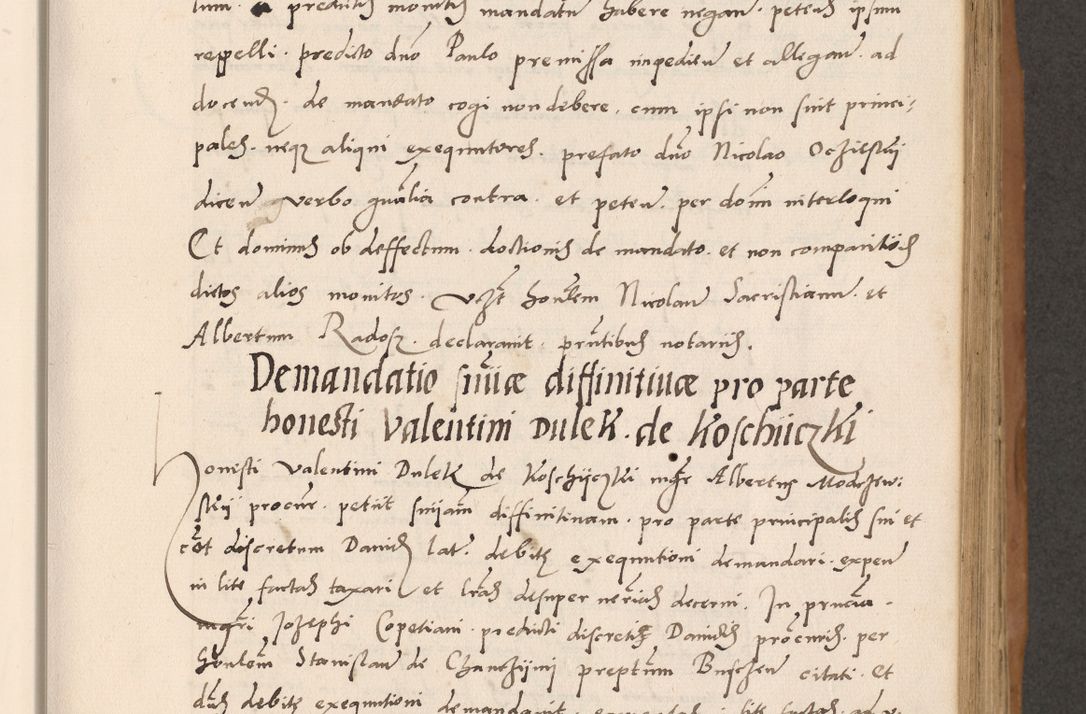 predictis monitis mandatum habere negant. petens ipsum
reppelli. predicto dno Paulo premissa impedien et allegan. ad
docend. de mandato cogi non debere. cum ipsi non sint princi:
pales. neqz aliqui exequutores. prefato dno Nicolao Oczieskij
dicen verbo gnalia contra. et peten. per dom interloqui
Et dominus ob deffectum. doctionis de mandato. et non comparitionis
dictos alios monitos. vczt honestem Nicolaum Sacristianum. et
Albertum Radosz. declaravit. pntibus notariis.
Demandatio sniae diffinitivae pro parte
honesti Valentini Dulek. de Koschijczki
Honesti Valentini Dulek de Koschijczki mgr Albertus Modczew:
skij procur. petiit sniam diffinitivam. pro parte principalis sui et
cont discretum Danid lat. debitae exequutioni demandari. expen
in lite factas taxari et lras desuper necrias decerni. In pncia.
magri Jozephi Copetiani. predicti discreti Danidis procuris. per
honestem Stanislaum de Chanczijni preptum Busczen citati. et
dus debitae exequutioni demandavit. lite factas. ad